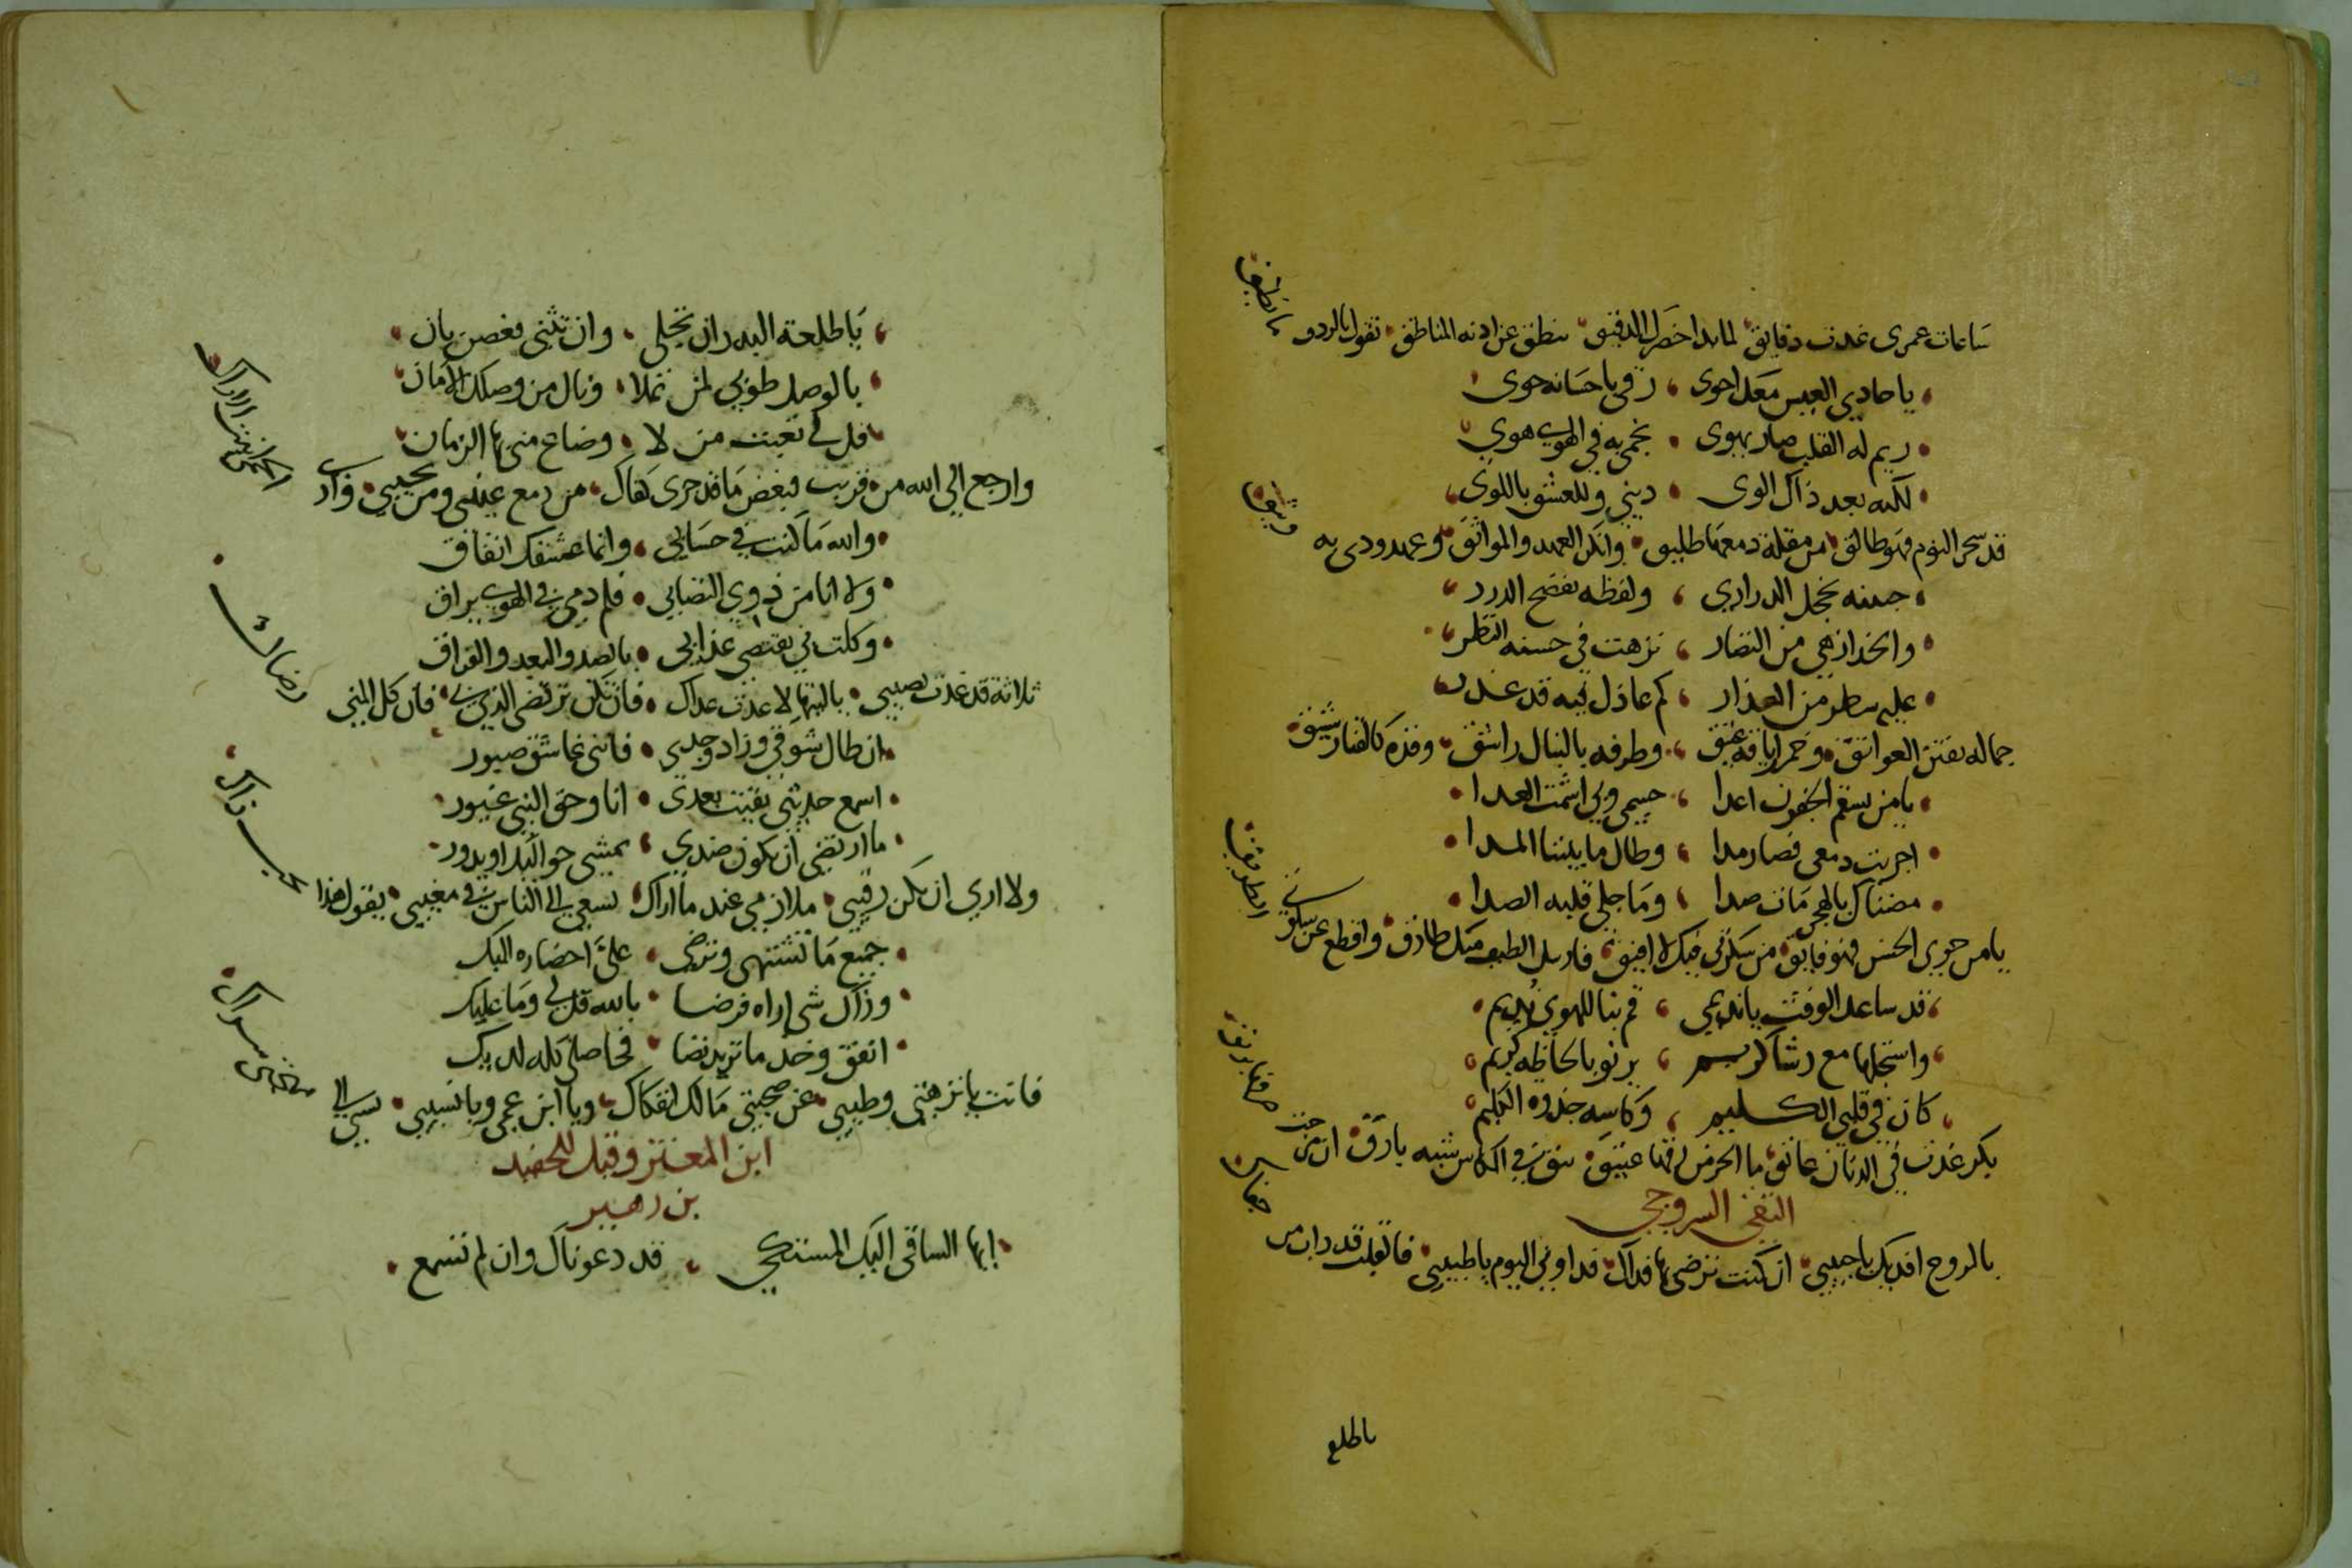 ساعات عمري غدت دقايق لما بدا خصرك الدقيق ينطق عن اذنه المناطق تقول بالردو
ما نطيق
يا حادي العيس مع احوى رقى باحسانه حوى
ريم له القلب صار يهوى نجمي به في الهوى هوى
لكنه بعد ذاك الوى ديني وللعشق باللوى
قد سحر النوم فهو طالق من مقلة دمعها طليق وانكر العهد والمواثق وعهدودي به
وثيق
جبينه يخجل الدراري ولفظه يفضح الدرر
والخد ازهى من النضار نزهت في حسنه النظر
عليه سطر من العذار كم عاذل فيه قد عذر
جماله يفتن العواتق وخمر ارياقه عتيق وطرفه بالنبال راشق وقده كالقنا رشيق
يا من بسقم الجفون اعدا جسمي وبي اشمت العدا
اجريت دمعي فصار مدا وطال ما بيننا المدا
مضناك بالهجر مات صدا وما جلى قلبه الصدا
يا من حوى الحسن فهو فايق من سكرتي فيك لا افيق فارسل الطيف منك طارق واقطع عن سلوتي
الطريق
قد ساعد الوقت يا نديمي قم بنا للهوى نديم
واستجلها مع رشا كريم يرنو بالحاظه كريم
كان في قلبي الكليم وكاسه جذوة الكليم
بكر غدت في الدنان عاتق ما الخمر من فمها عتيق سق في الكاس شبه بارق ان مزجت
التقي السروجي
بالروح افديك يا حبيبي ان كنت ترضى بها فداك فداوني اليوم يا طبيبي فالقلب قد ذاب من
جفاك
ياطلع
يا طلعة البدر ان تجلى وان تثنى فغصن بان
بالوصل طوبى لمن تملا ونال من وصلك الامان
قل لي نعم من لا وضاع مني بها الزمان
وارجع الى الله من قريب فبعض ما قد جرى كفاك من دمع عيني ومن نحيبي
والله ما كنت في حسابي وانما عشقك اتفاق
ولا انا من ذوي التصابي فلم دمي في الهوى يراق
وكلت بي تقتضي عذابي بالصد والبعد والفراق
ثلاثة قد غدت نصيبي يا ليتها لا عدت عداك فان تكن ترتضي الذي بي فان كل المنى
رضاك
ان طال شوقي وزاد وجدي فانني عاشق صبور
اسمع حديثي بقيت بعدي انا وحق النبي غيور
ما ارتضي ان يكون ضدي يمشي حواليك او يدور
ولا ارى ان يكن رقيبي ملازمي عند ما اراك يسعى الى الناس في مغيبي يقول هذا
يحب ذاك
جميع ما تشتهي وترضى علي احضاره اليك
وذاك شي اراه فرضا بالله قل لي وما عليك
انفق وخذ ما تريد نضا فحاصلي كله لديك
فانت يا نزهتي وطيبي عن صحبتي مالك انفكاك ويا ابن عمي ويا نسيبي
ابن المعتز وقيل للحفيد
بن زهير
ايها الساقي اليك المشتكي قد دعوناك وان لم تسمع